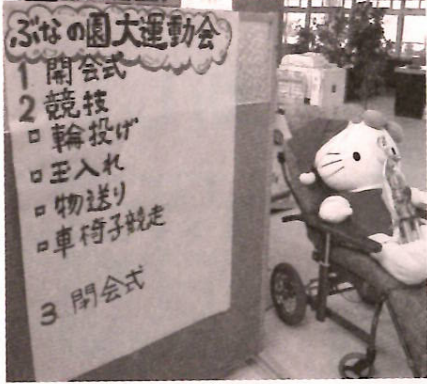 ぶなの園大運動会
1 開会式
2 競技
□ 輪投げ
□ 玉入れ
□ 物送り
□ 車椅子競走
3 閉会式